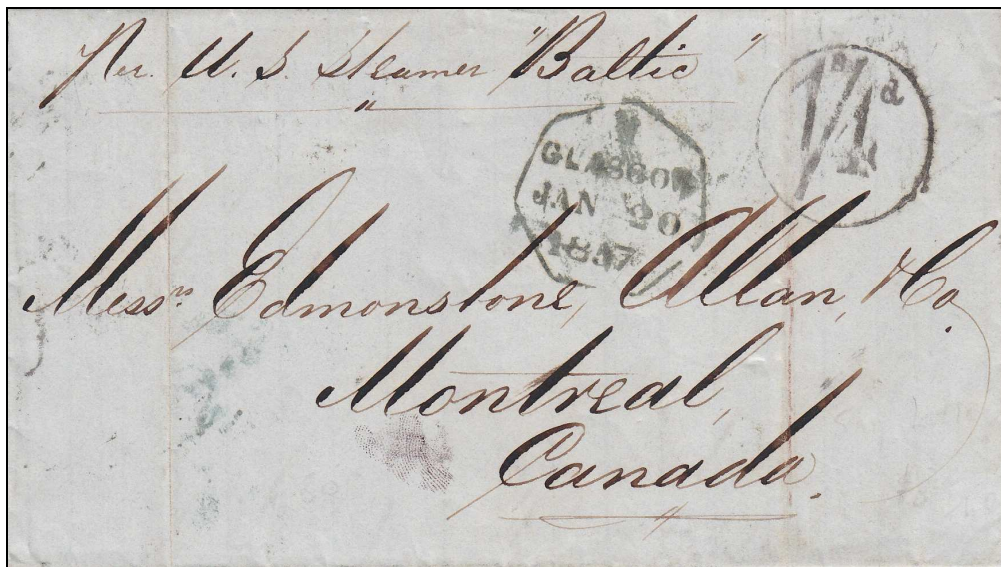 Per. U. S. Steamer "Baltic"
1s/4d
GLASGOW
JAN 20
1857
Messrs Edmonstone, Allan, & Co.
Montreal,
Canada.